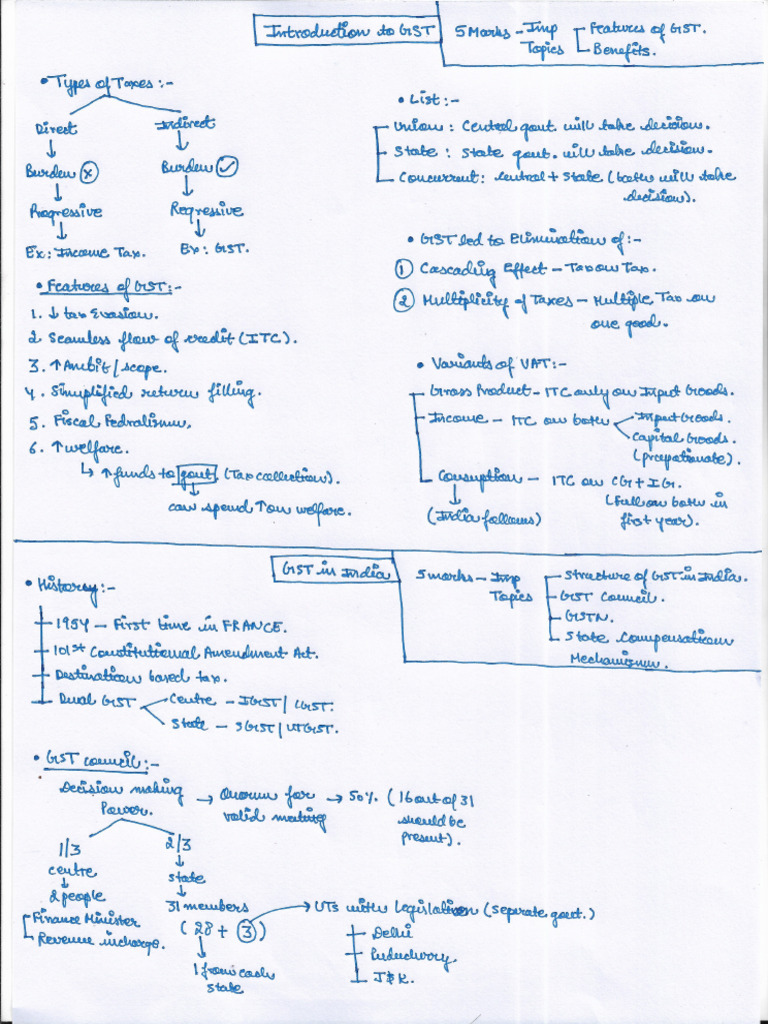 Introduction to GST
5 Marks - Imp Topics
Features of GST.
Benefits.
• Types of Taxes :-
Direct
Indirect
Burden x
Burden ✓
Progressive
Regressive
Ex: Income Tax.
Ex: GST.
• Features of GST:-
1. ↓ tax Evasion.
2. Seamless flow of credit (ITC).
3. ↑ Ambit / scope.
4. Simplified return filling.
5. Fiscal Fedralism.
6. ↑ welfare.
↳ ↑ funds to govt. (Tax collection).
can spend ↑ on welfare.
• List :-
Union : Central govt. will take decision.
State : State govt. will take decision.
Concurrent : Central + State (both will take
decision).
• GST led to Elimination of :-
1 Cascading Effect - Tax on Tax.
2 Multiplicity of Taxes - Multiple Tax on
one good.
• Variants of VAT:-
Gross Product - ITC only on Input Goods.
Income - ITC on both
Input Goods.
Capital Goods.
(prepationate).
Consuption - ITC on CG + IG.
(India follows)
(Full on both in
first year).
GST in India
5 marks - Imp
Topics
Structure of GST in India.
GST Council.
GSTN.
State Compensation
Mechanism.
• History:-
1954 - First time in FRANCE.
101st Constitutional Amendment Act.
Destination based tax.
Dual GST
Centre - IGST / CGST.
State - SGST / UTGST.
• GST council:-
Decision making
Power.
→ Quorum for
valid meeting
→ 50% (16 out of 31
should be
present).
1/3
centre
2 people
Finance Minister
Revenue incharge.
2/3
state
31 members
(28 + 3)
1 from each
state
→ UTs with Legislation (seperate govt.)
Delhi
Puducherry.
J & K.